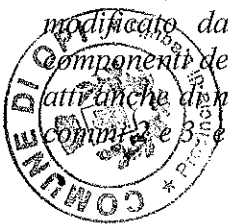 modificato da
componenti de
atti anche di n
commi 2 e 3, e
COMUNE DI